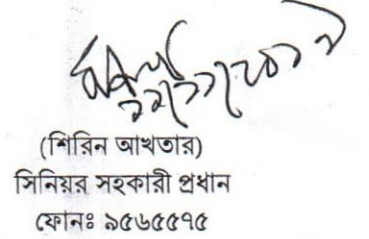 (শিরিন আখতার)
সিনিয়র সহকারী প্রধান
ফোনঃ ৯৫৬৫৫৭৫